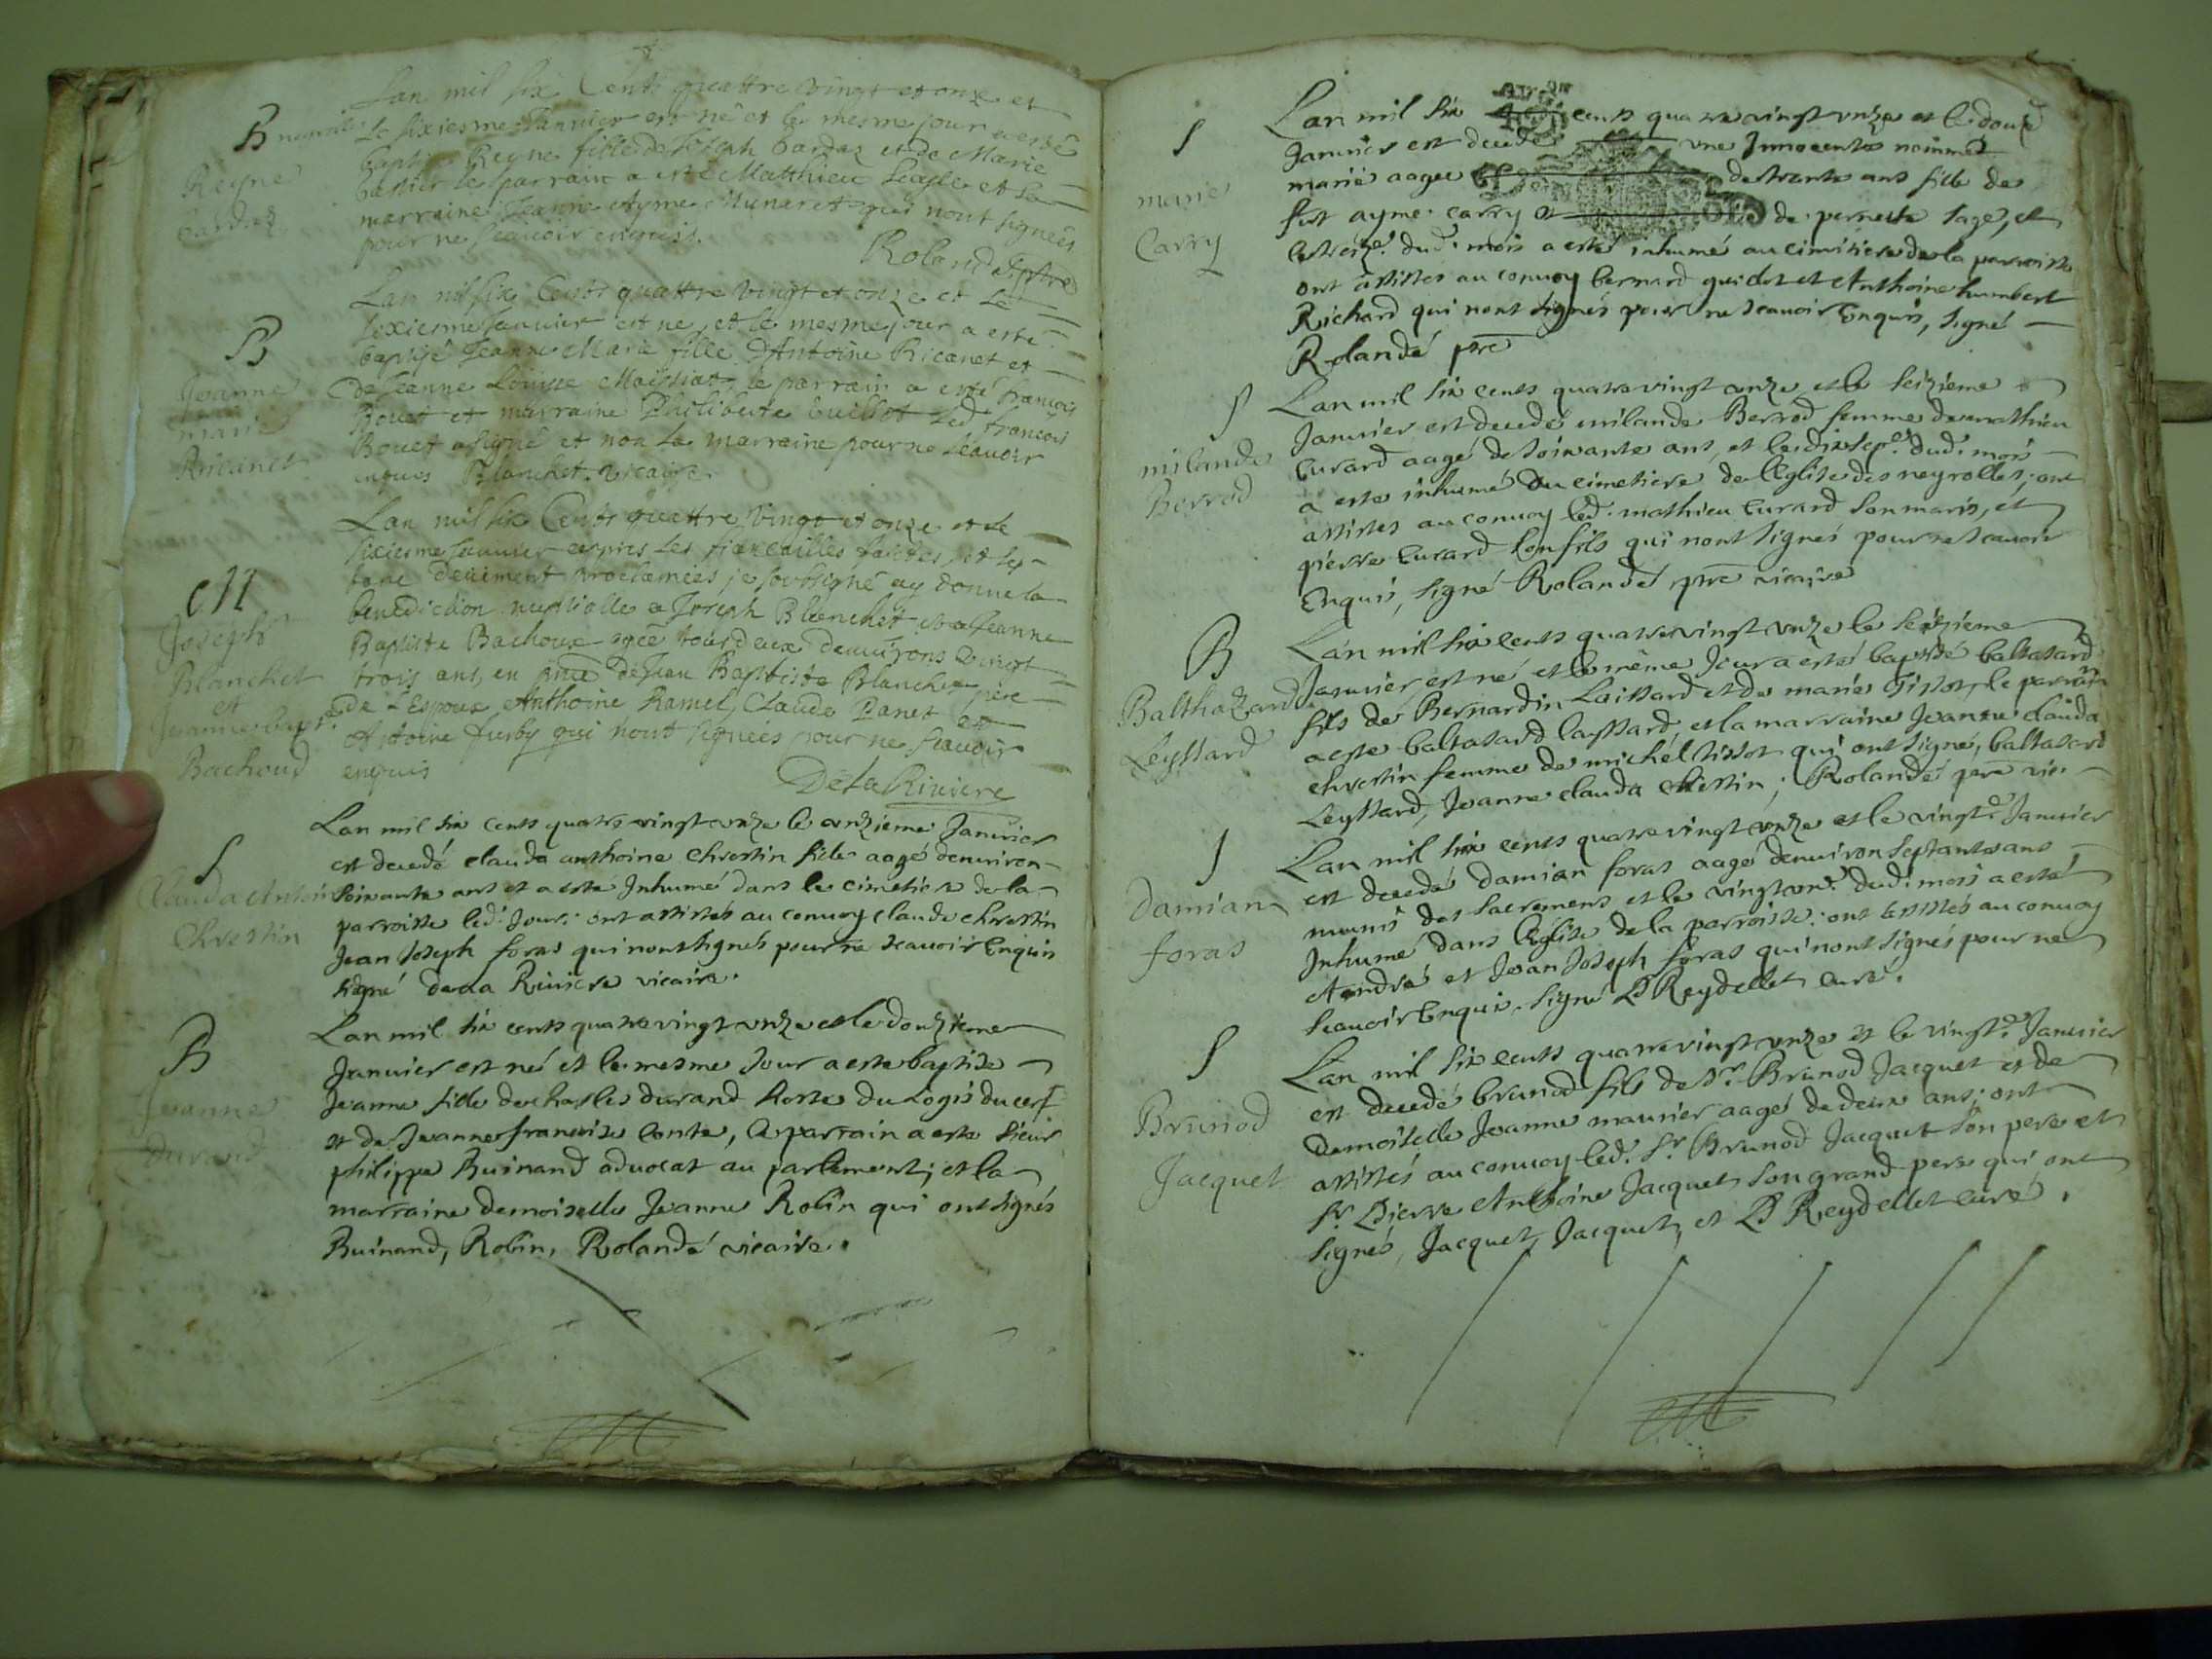 Lan mil six Cents quattre vingt et onze et
B
le sixiesme Janvier est né et le mesme jour a esté
Reyne
baptisé Reyne fille de Joseph bardaz et de Marie
le parrain a esté Matthieu et la
bardaz
marraine Jeanne Ayme Munaret qui nont signées
pour ne sçauoir enquis.
Rolandé ptre
Lan mil six Cents quattre vingt et onze et Le
B
sixiesme Januier est né, et le mesme jour a esté
Jeanne
marie
Ricanet
baptisé Jeanne Marie fille D'Antoine Ricanet et
de Jeanne Louise Maissiat, le parrain a esté francois
Bouet et marraine Philiberte Vuillet Led francois
Bouet a signé et non la marraine pour ne sçauoir
enquis Blanchet vicaire
Lan mil six Cents quattre vingt et onze et le
M
sixiesme Januier apres les fiancailles faictes, et les
bans deüement proclamées je soubsigné ay donné la
Joseph
Blanchet
et
Jeanne bapt.
Bachoud
benediction nuptialle a Joseph Blanchet et a Jeanne
Baptiste Bachoux agée tous deux denuirons vingt
trois ans, en pnce de Jean Baptiste Blanchet père
de L'Espoux Anthoine Ramel, Claude Panet et
Antoine furby qui n'ont signées pour ne scauoir
enquis
De la Riuiere
Lan mil six cents quatre vingt unze le unzieme Januier
S
est decedé clauda anthoine chrestin fille aagé denuiron
Clauda Antoi
Chrestin
soixante ans et a este Inhumé dans le cimetiere de la
parroisse led. Jour: ont assistés au conuoy claude chrestin
Jean Joseph foras qui n'ont signés pour ne scauoir Enquis
signé de la Riuiere vicaire.
Lan mil six cents quatre vingt unze et le douzieme
B
Januier est né et le mesme Jour a este baptise
Jeanne
durand
Jeanne fille de charles durand hoste du Logis du cerf
et de Jeanne francoise Conte, le parrain a este sieur
philippe Buinand aduocat au parlement; et la
marraine demoiselle Jeanne Robin qui ont signés
Buinand, Robin, Rolandé vicaire.
Lan mil six cents quatre vingt unze et le douze
S
Januier est decedé une Innocente nommé
marie
Carry
marie aagee de trente ans fille de
fut ayme carry et de pernette sage, et
le treize. dud. mois a esté inhumé au cimitiere de la parroisse
ont assistes au conuoy bernard guidot et Anthoine humbert
Richard qui n'ont signés pour ne scauoir Enquis, signé
Rolandé ptre
Lan mil six cents quatre vingt unze et le seizieme
S
Januier est decedé milande Berrod femme de mathieu
milande
Berrod
Eurard aagé de soixante ans, et le dixsep.e dud. mois
a este inhumé au cimetiere de l'Eglise des neyrolles; ont
assistes au conuoy led. mathieu Eurard son maris, et
pierre Eurard son fils qui n'ont signés pour ne scauoir
Enquis, signé Rolandé, ptre vicaire
Lan mil six cents quatre vingt unze le seizieme
B
Januier est né et le même Jour a esté baptisé baltasard
Balthazard
Leyssard
fils de Bernardin Laissard et de marie Tissot, le parrain
a este baltasard layssard, et la marraine Jeanne clauda
chrestin femme de michel tissot qui ont signé, baltasard
Leyssard, Jeanne clauda chestin, Rolandé ptre vic.
Lan mil six cents quatre vingt unze et le vingt.e Januier
S
est decedé damian foras aagé denuiron septante ans
damian
foras
munis des sacremens et le vingt un.e dud. mois a esté
Inhumé dans l'Eglise de la parroisse. ont assistés au conuoy
André et Jean Joseph foras qui n'ont signés pour ne
scauoir Enquis. signé D Reydellet curé.
Lan mil six cents quatre vingt unze et le vingt.e Januier
S
est decedé brunod fils de Sr. Brunod Jacquet et de
Brunod
Jacquet
Demoiselle Jeanne maurier aagé de deux ans; ont
assistés au conuoy led. Sr. Brunod Jacquet son pere et
Sr. Pierre Anthoine Jacquet son grand pere qui ont
signés, Jacquet, Jacquet, et D Reydellet curé.